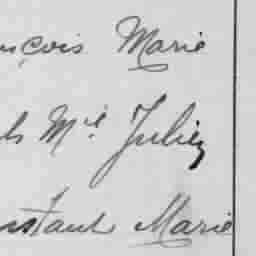 nçois Marie
ls Mie Julien
nstant Marie